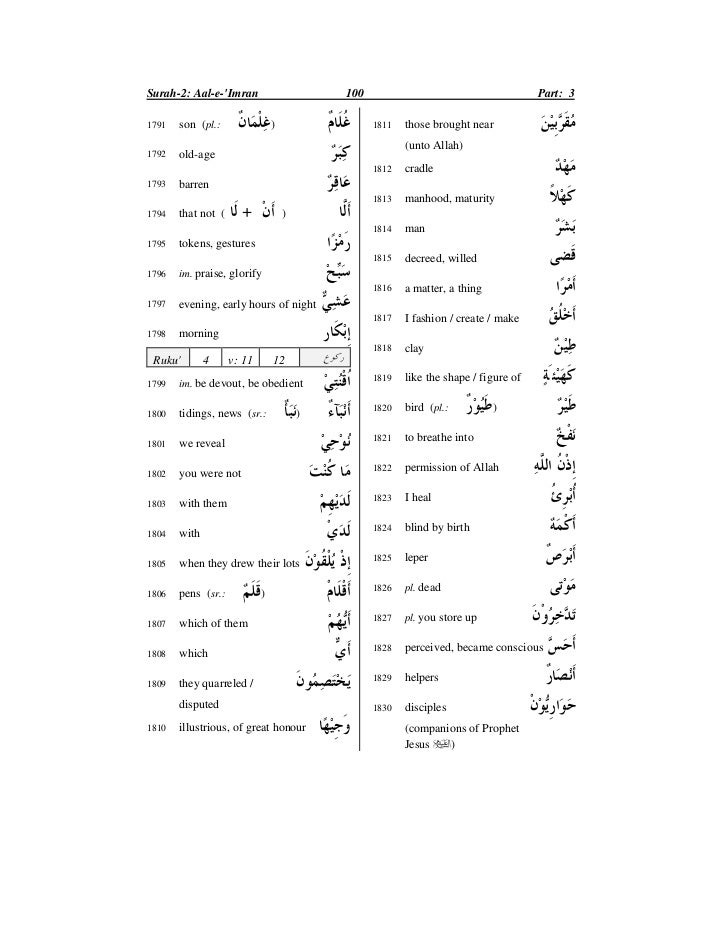 Surah-2: Aal-e-'Imran 100 Part: 3
1791 son (pl.: غِلْمَانٌ) غُلَامٌ
1792 old-age كِبَرٌ
1793 barren عَاقِرٌ
1794 that not ( لَا + أَنْ ) أَلَّا
1795 tokens, gestures رَمْزًا
1796 im. praise, glorify سَبِّحْ
1797 evening, early hours of night عَشِيٌّ
1798 morning إِبْكَار
Ruku' 4 v: 11 12 ركوع
1799 im. be devout, be obedient اُقْنُتِيْ
1800 tidings, news (sr.: نَبَأٌ) أَنْبَآءٌ
1801 we reveal نُوْحِيْ
1802 you were not مَا كُنْتَ
1803 with them لَدَيْهِمْ
1804 with لَدَيْ
1805 when they drew their lots إِذْ يُلْقُوْنَ
1806 pens (sr.: قَلَمٌ) أَقْلَامْ
1807 which of them أَيُّهُمْ
1808 which أَيٌّ
1809 they quarreled / يَخْتَصِمُونَ
disputed
1810 illustrious, of great honour وَجِيْهًا
1811 those brought near مُقَرَّبِيْنَ
(unto Allah)
1812 cradle مَهْدٌ
1813 manhood, maturity كَهْلاً
1814 man بَشَرٌ
1815 decreed, willed قَضى
1816 a matter, a thing أَمْرًا
1817 I fashion / create / make أَخْلُقُ
1818 clay طِيْنٌ
1819 like the shape / figure of كَهَيْئَةِ
1820 bird (pl.: طُيُوْرٌ) طَيْرٌ
1821 to breathe into نَفْخٌ
1822 permission of Allah إِذْنُ اللَّهِ
1823 I heal أُبْرِئُ
1824 blind by birth أَكْمَهٌ
1825 leper أَبْرَصٌ
1826 pl. dead مَوْتى
1827 pl. you store up تَدَّخِرُوْنَ
1828 perceived, became conscious أَحَسَّ
1829 helpers أَنْصَارٌ
1830 disciples حَوَارِيُّوْنْ
(companions of Prophet
Jesus )